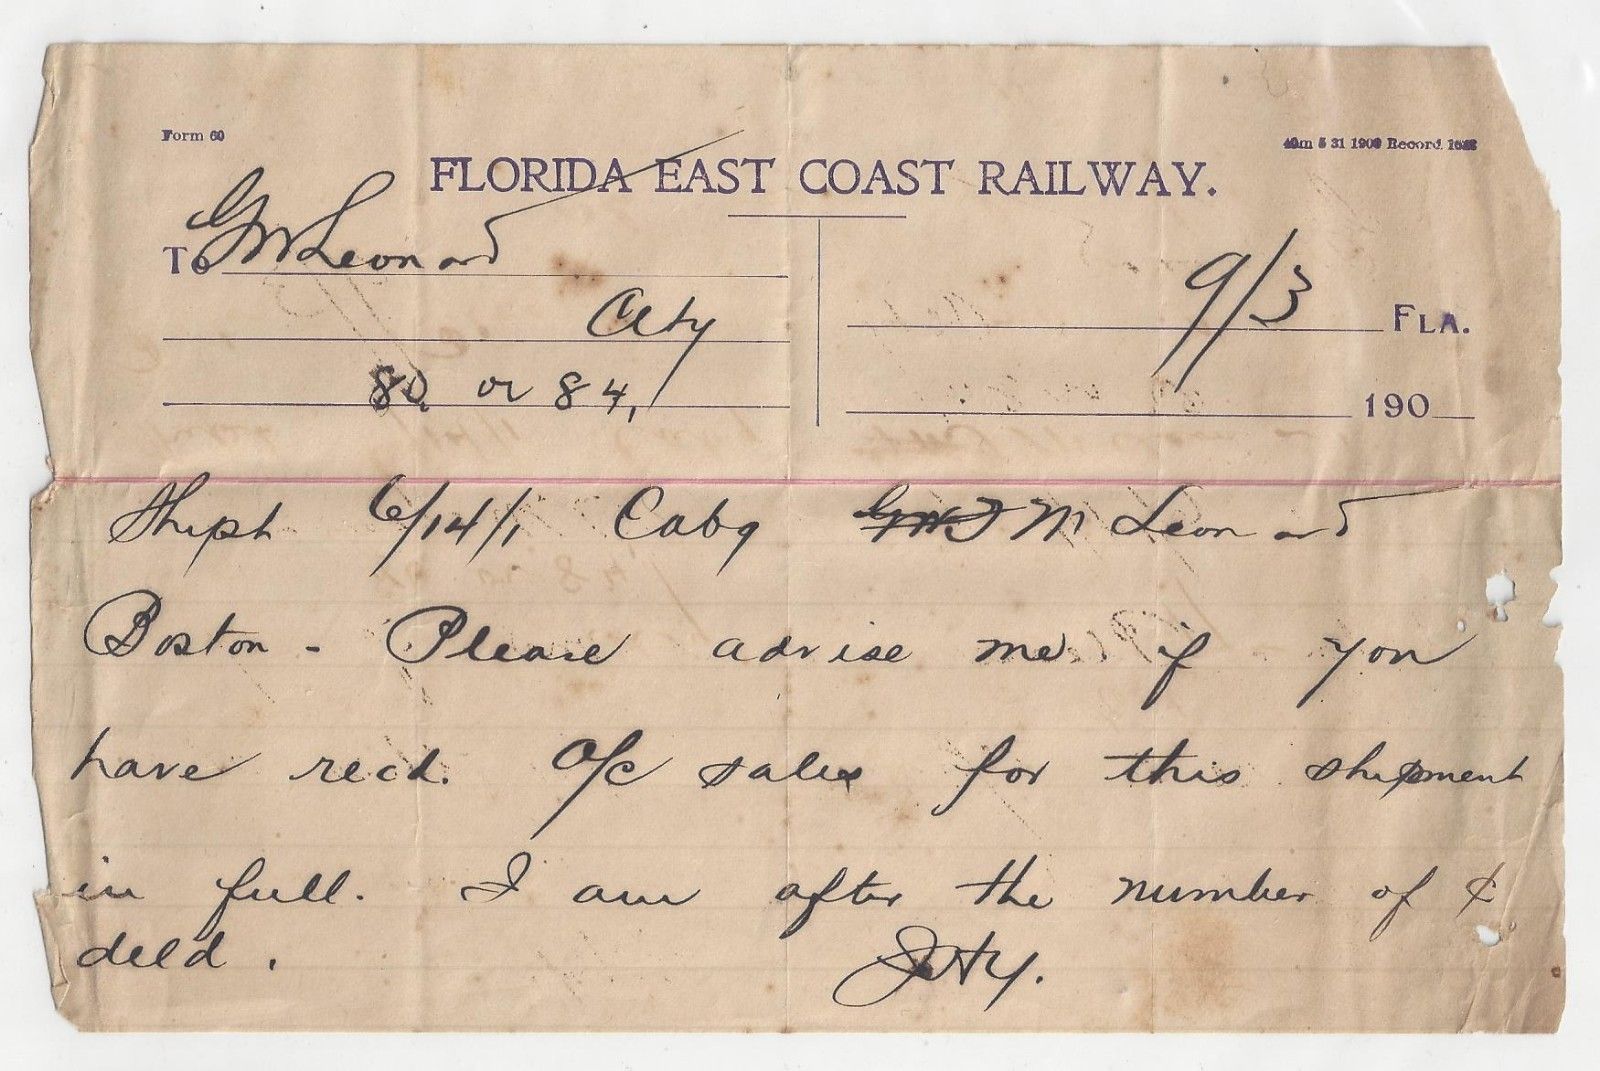 Form 60
FLORIDA EAST COAST RAILWAY.
To GM Leonard
City
9/3 FLA.
80 or 84,
190
Shipt 6/14/1 Cabg M Leonard
Boston - Please advise me if you
have recd. a/c sales for this shipment
in full. I am after the number of ¢
deld.